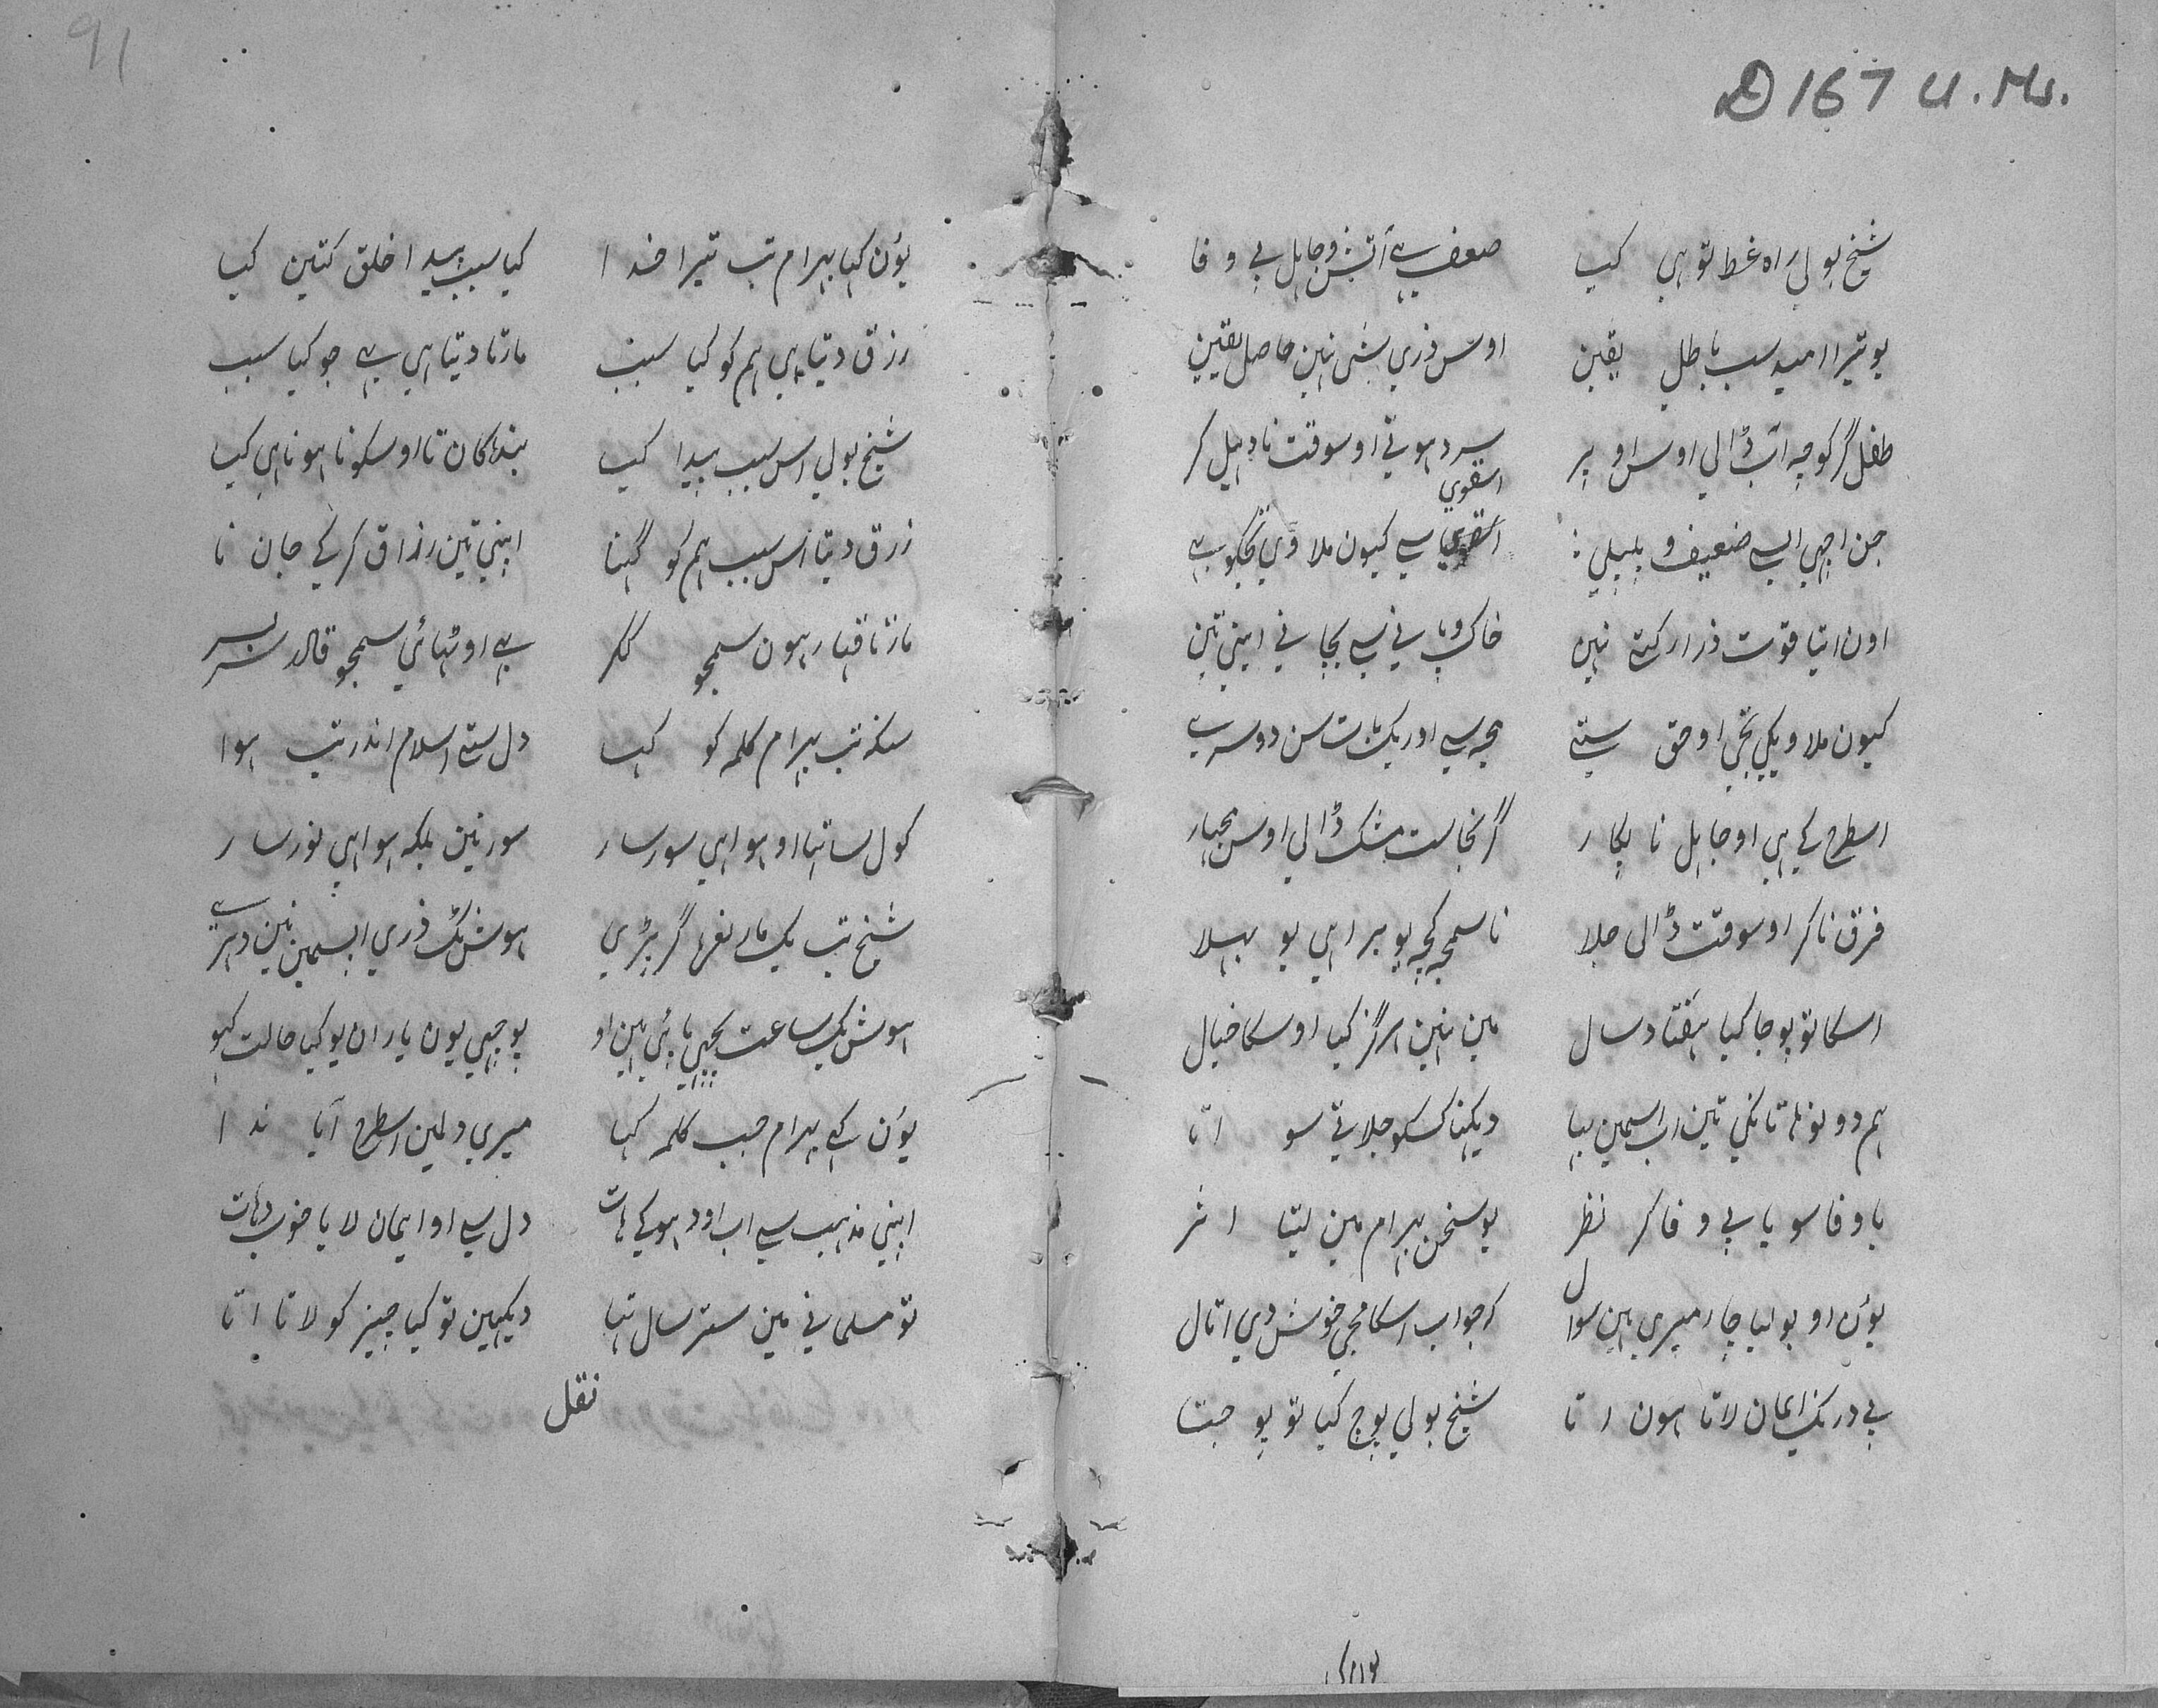 D 167 U. Ms.
شیخ بولی راہ غلط توہی کیا صعف ہے آتش و جاہل بی وفا
یو تیرا امید سب باطل یقین اوس ذری بشی نہین حاصل یقین
طفل گر کوچہ آب ڈالی اوس اوپر سرد ہوتی اوسوقت نا دہیل کر
جن اچہی ایسے ضعیف و پلیلی اسقوی سے کیون ملاوی تجکو ہے
اسقوی
اون اتیا قوت ذرا رکتے نہین خاک و پانی سے بچانی اپنی تین
کیون ملاویگی تجی او حق ستے مجہ سے اور یک بات سن دوسرے
اسطرح کی ہی او جاہل نا بکار گر نجاست مشک ڈالی اوس مجہار
فرق نا کر اوسوقت ڈالی جلا نا سمجہ کچہ یو برا ہی یو بہلا
اسکا تو پوجا کیا ہفتاد سال مین نہین ہرگز کیا اوسکا خیال
ہم دونو ہاتانکی تین اب اسمین بہا دیکہنا کسکو جلاتی سو اتا
با وفا سو یا بی وفا کر نظر یو سخن بہرام مین لیتا اثر
یون او بولیا چار میری ہین سوال کر جواب اسکا مجی خوش دی اتال
بی درنگ ایمان لاتا ہون اتا شیخ بولی پوچ کیا تو پوچتا
91
یون کہا بہرام تب تیرا خدا کیا سبب پیدا خلق کتین کیا
رزق دیتا ہی ہم کو کیا سبب مارتا دیتا ہی ہے جو کیا سبب
شیخ بولی اس سبب پیدا کیا بندہکان تا اوسکو نا ہونا ہی کیا
رزق دیتا اس سبب ہم کو گہنا اپنی تین رزاق کر کے جان نا
مارتا قہار ہون سمجو ککر ہے اوٹہائی سمجو قادر سر بسر
سنکہ تب بہرام کلمہ کو کہا دل ستے اسلام اندر تب ہوا
کول ساتہا او ہوا ہی سور سار سور نہین بلکہ ہوا ہی نور سار
شیخ تب یک مارے نعرہ گر پڑی ہوش ٹک ذری اسمین نہین دہرے
ہوش یک ساعت پچہی پائی ہین او پوچہی یون یاران یو کیا حالت کہو
یون کہے بہرام جب کلمہ کہا میری دلمین اسطرح آیا ندا
اپنی مذہب سے اب اود ہوکے ہات دل سے او ایمان لایا خوب دہات
تو مسلمانی مین ستر سال تہا دیکہین تو کیا چیز کو لاتا اتا
نقل